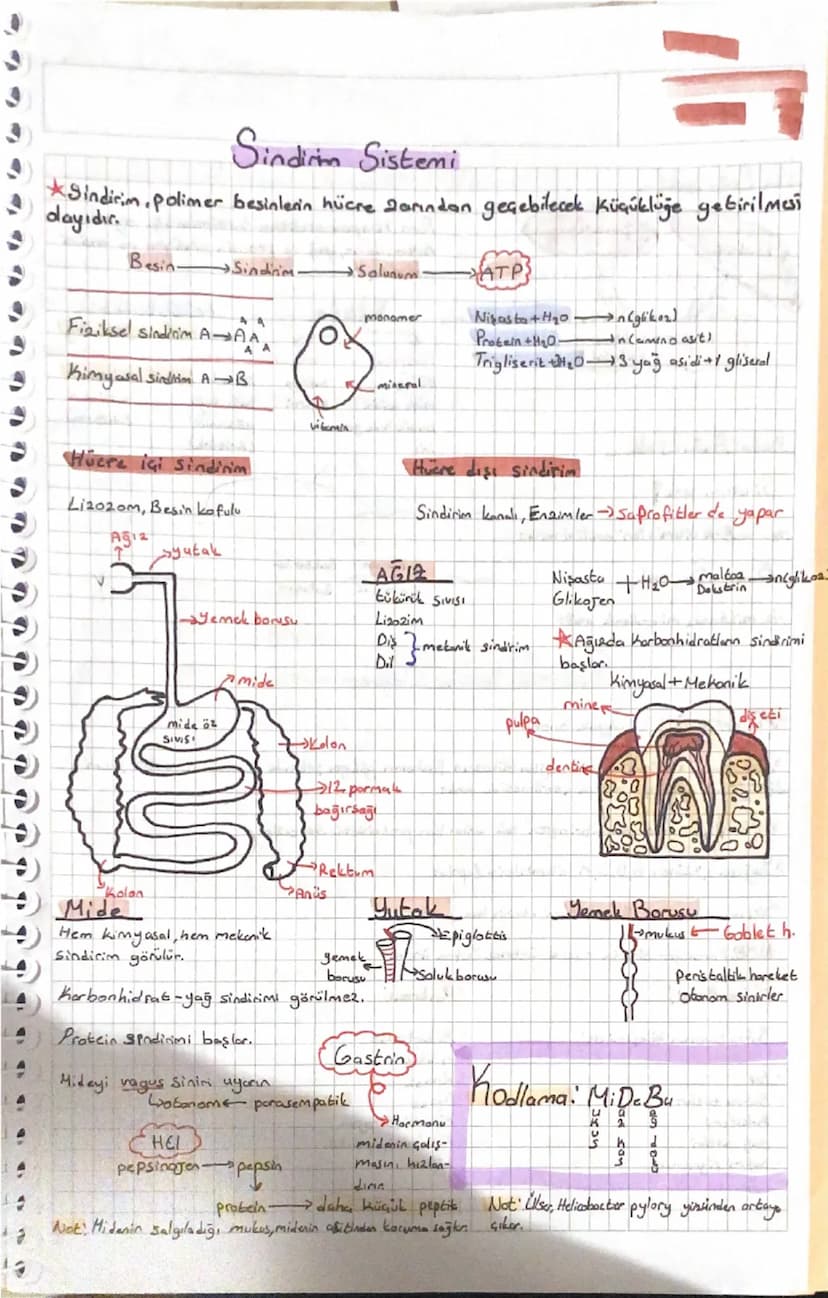 Sindirim Sistemi
★Sindirim, polimer besinlerin hücre zarından geçebilecek küçüklüğe getirilmesi
olayıdır.
Besin → Sindirim → Solunum → ATP
Fiziksel sindirim A→A A A A A
Kimyasal sindirim A→B
monomer
mineral
vitamin
Nişasta+H₂O → n(glikoz)
Protein+H₂O → n(amino asit)
Trigliserit+3H₂O → 3 yağ asidi+1 gliserol
Hücre içi sindirim
Lizozom, Besin kofulu
Hücre dışı sindirim
Sindirim kanalı, Enzimler → Saprofitler de yapar
Ağız
yutak
Yemek borusu
mide
mide öz
sıvısı
Kolon
12 parmak
bağırsağı
Rektum
Anüs
Kolon
AĞIZ
tükürük sıvısı
Lizozim
Diş
Dil
mekanik sindirim
Nişasta
Glikojen
+H₂O → maltoz
Dekstrin
→ n(glikoz)
★Ağızda karbonhidratların sindirimi
başlar.
Kimyasal+Mekanik
mine
pulpa
diş eti
dentin
Mide
Hem kimyasal, hem mekanik
sindirim görülür.
Karbonhidrat-yağ sindirimi görülmez.
Protein sindirimi başlar.
Mideyi vagus siniri uyarır
otonom ← parasempatik
HCl
pepsinojen → pepsin
protein → daha küçük peptit
Not: Midenin salgıladığı mukus, midenin asitinden koruma sağlar.
Yutak
Epiglottis
yemek
borusu
Soluk borusu
Gastrin
Hormonu
midenin çalış-
masını hızlan-
dırır.
Yemek Borusu
mukus ← Goblet h.
Peristaltik hareket
Otonom sinirler
Kodlama: MiDeBu
ukus